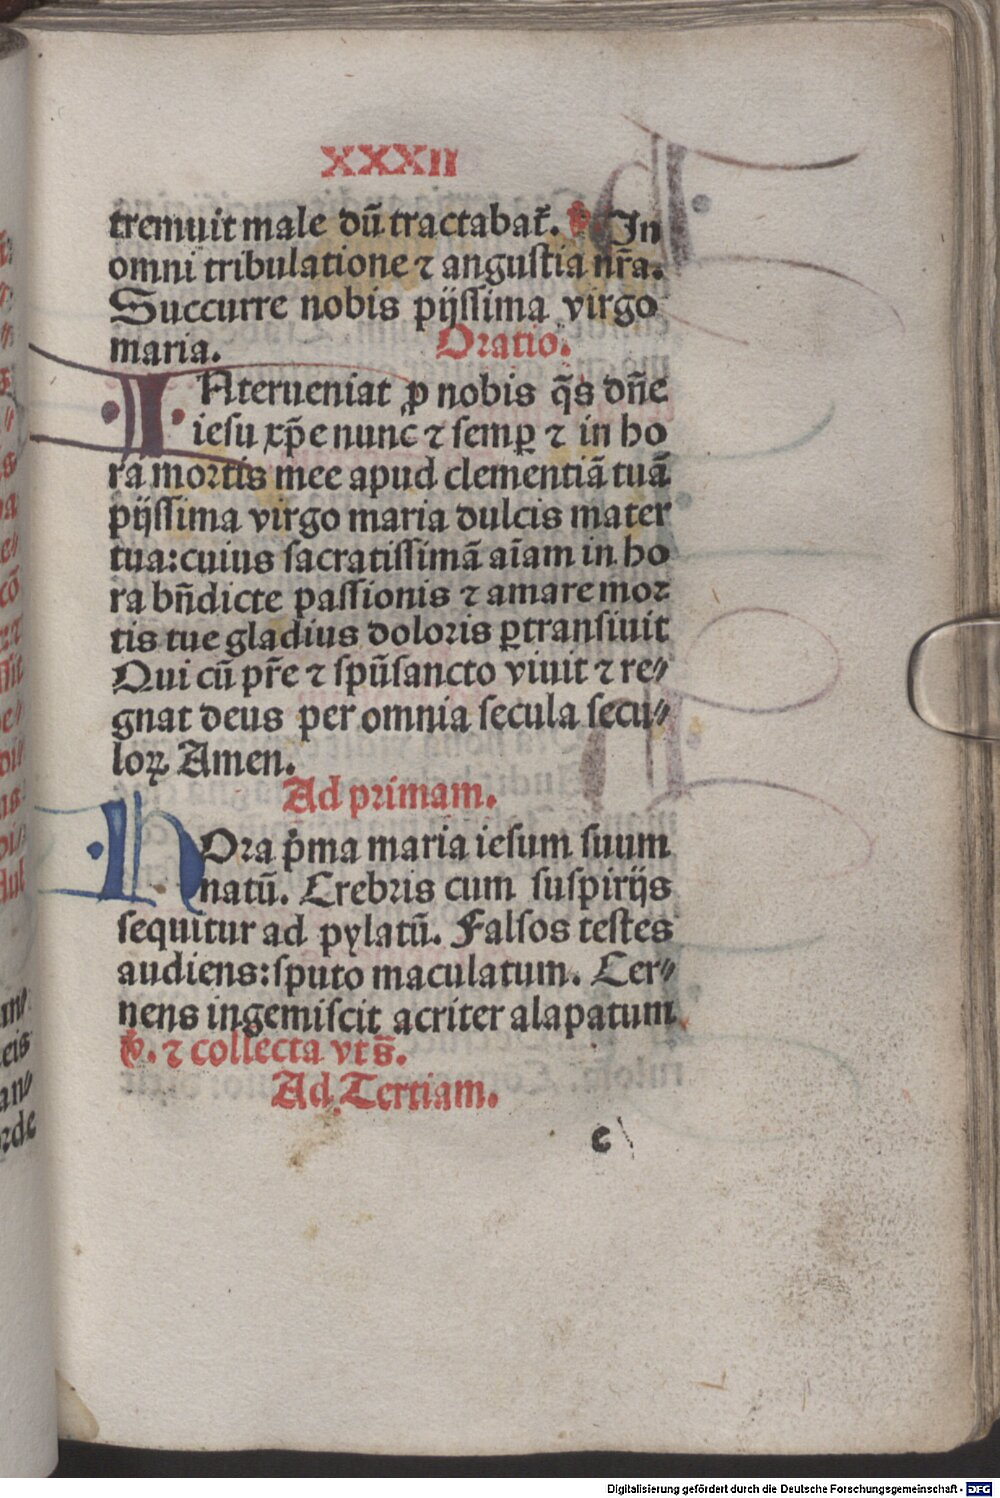 XXXII
tremuit male dū tractabat̄. ℣. In
omni tribulatione ⁊ angustia nr̄a.
Succurre nobis pijssima virgo
maria. Oratio.
INterueniat ꝓ nobis q̄s dn̄e
iesu xp̄e nunc ⁊ semꝑ ⁊ in ho
ra mortis mee apud clementiā tuā
pijssima virgo maria dulcis mater
tua: cuius sacratissimā aīam in ho
ra bn̄dicte passionis ⁊ amare mor
tis tue gladius doloris ꝑtransiuit
Qui cū pr̄e ⁊ spū sancto viuit ⁊ re⸗
gnat deus per omnia secula secu⸗
loꝝ Amen.
Ad primam.
HOra p̄ma maria iesum suum
natū. Crebris cum suspirijs
sequitur ad pylatū. Falsos testes
audiens: sputo maculatum. Cer⸗
nens ingemiscit acriter alapatum
℣. ⁊ collecta vt s̄.
Ad Tertiam.
c
Digitalisierung gefördert durch die Deutsche Forschungsgemeinschaft - DFG